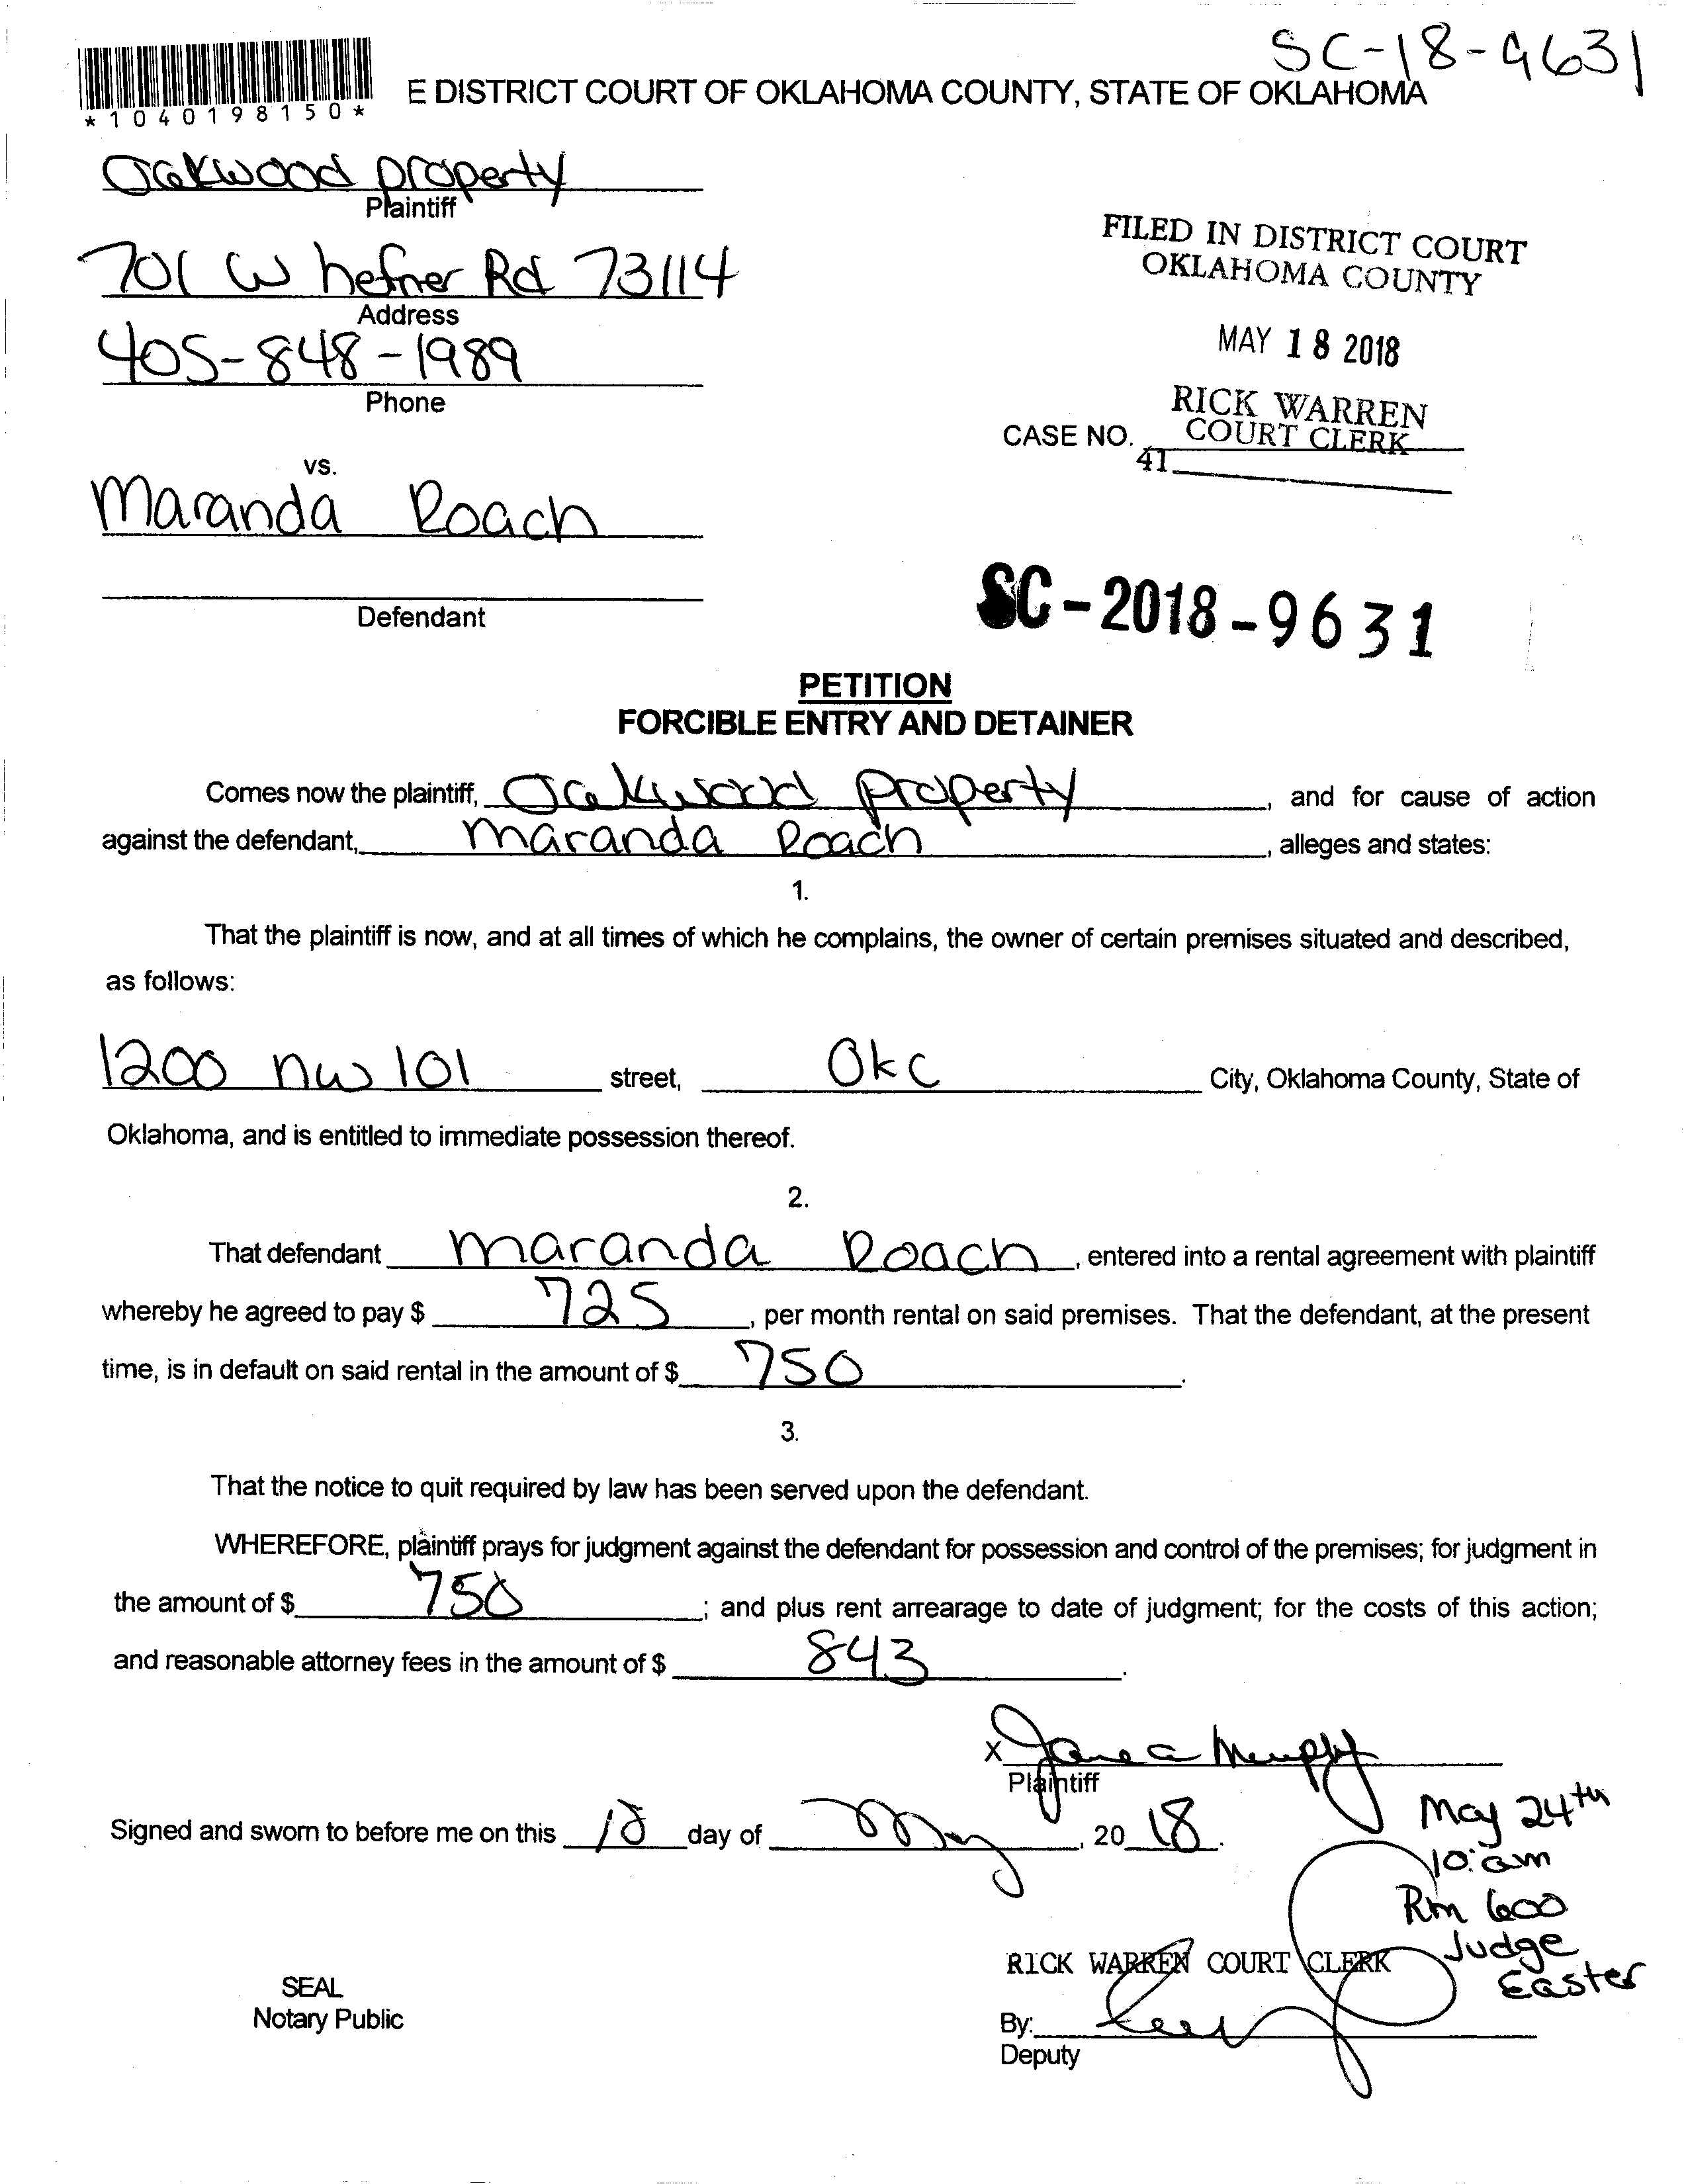 SC-18-9631
*1040198150*
E DISTRICT COURT OF OKLAHOMA COUNTY, STATE OF OKLAHOMA
Oakwood property
Plaintiff
701 W hefner Rd 73114
Address
405-848-1989
Phone
FILED IN DISTRICT COURT
OKLAHOMA COUNTY
MAY 18 2018
RICK WARREN
COURT CLERK
CASE NO.
41
vs.
Maranda Roach
Defendant
SC-2018-9631
PETITION
FORCIBLE ENTRY AND DETAINER
Comes now the plaintiff, Oakwood property, and for cause of action
against the defendant, Maranda Roach, alleges and states:
1.
That the plaintiff is now, and at all times of which he complains, the owner of certain premises situated and described,
as follows:
1200 nw 101 street, OKC City, Oklahoma County, State of
Oklahoma, and is entitled to immediate possession thereof.
2.
That defendant Maranda Roach, entered into a rental agreement with plaintiff
whereby he agreed to pay $ 725, per month rental on said premises. That the defendant, at the present
time, is in default on said rental in the amount of $ 750.
3.
That the notice to quit required by law has been served upon the defendant.
WHEREFORE, plaintiff prays for judgment against the defendant for possession and control of the premises; for judgment in
the amount of $ 750; and plus rent arrearage to date of judgment; for the costs of this action;
and reasonable attorney fees in the amount of $ 843.
X
Plaintiff
Signed and sworn to before me on this 18 day of May, 2018.
May 24th
10:am
Rm 600
Judge
Easter
RICK WARREN COURT CLERK
SEAL
Notary Public
By:
Deputy